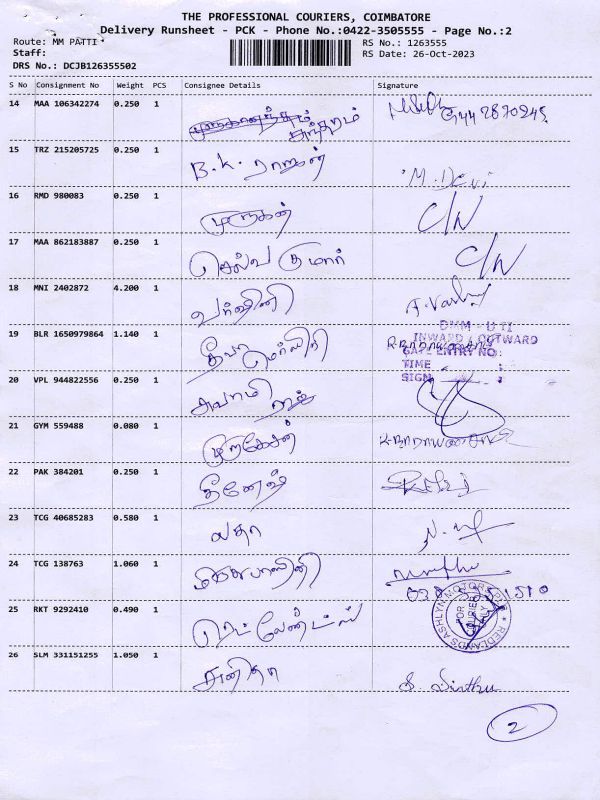 THE PROFESSIONAL COURIERS, COIMBATORE
Delivery Runsheet - PCK - Phone No.:0422-3505555 - Page No.:2
Route: MM PATTI
RS No.: 1263555
Staff:
RS Date: 26-Oct-2023
DRS No.: DCJB126355502
S No Consignment No Weight PCS Consignee Details Signature
14 MAA 106342274 0.250 1 சுந்தரம்
15 TRZ 215205725 0.250 1 B.K. ராஜன் M. Devi
16 RMD 980083 0.250 1 முருகன் C/N
17 MAA 862183887 0.250 1 செல்வகுமார் C/N
18 MNI 2402872 4.200 1 வர்ஷினி
19 BLR 1650979864 1.140 1 தீபா
DMM - UTI
INWARD / OUTWARD
GATE ENTRY NO:
TIME :
SIGN :
20 VPL 944822556 0.250 1
21 GYM 559488 0.080 1 முருகேசன்
22 PAK 384201 0.250 1 தினேஷ்
23 TCG 40685283 0.580 1 லதா
24 TCG 138763 1.060 1
25 RKT 9292410 0.490 1 ரெட் லேண்ட்ஸ்
REDLANDS ASHLYN MOTORS
FOR COURIER ONLY
26 SLM 331151255 1.050 1 S. Sinthu
2